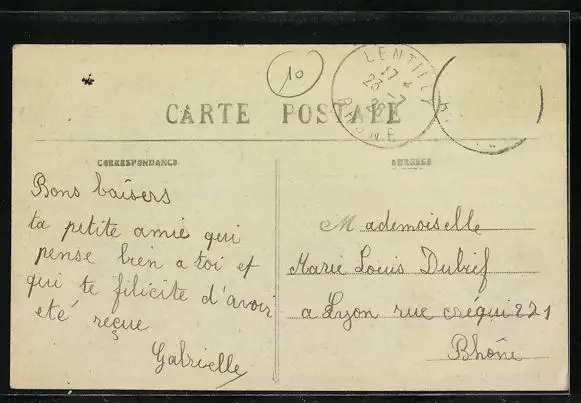 10
LENTILLY
17 *
23 -7
28
RHONE
CARTE POSTALE
CORRESPONDANCE
ADRESSE
Bons baisers
ta petite amie qui
pense bien a toi et
qui te filicite d'avoir
eté reçue
Gabrielle
Mademoiselle
Marie Louis Dubief
a Lyon rue créqui 221
Rhône